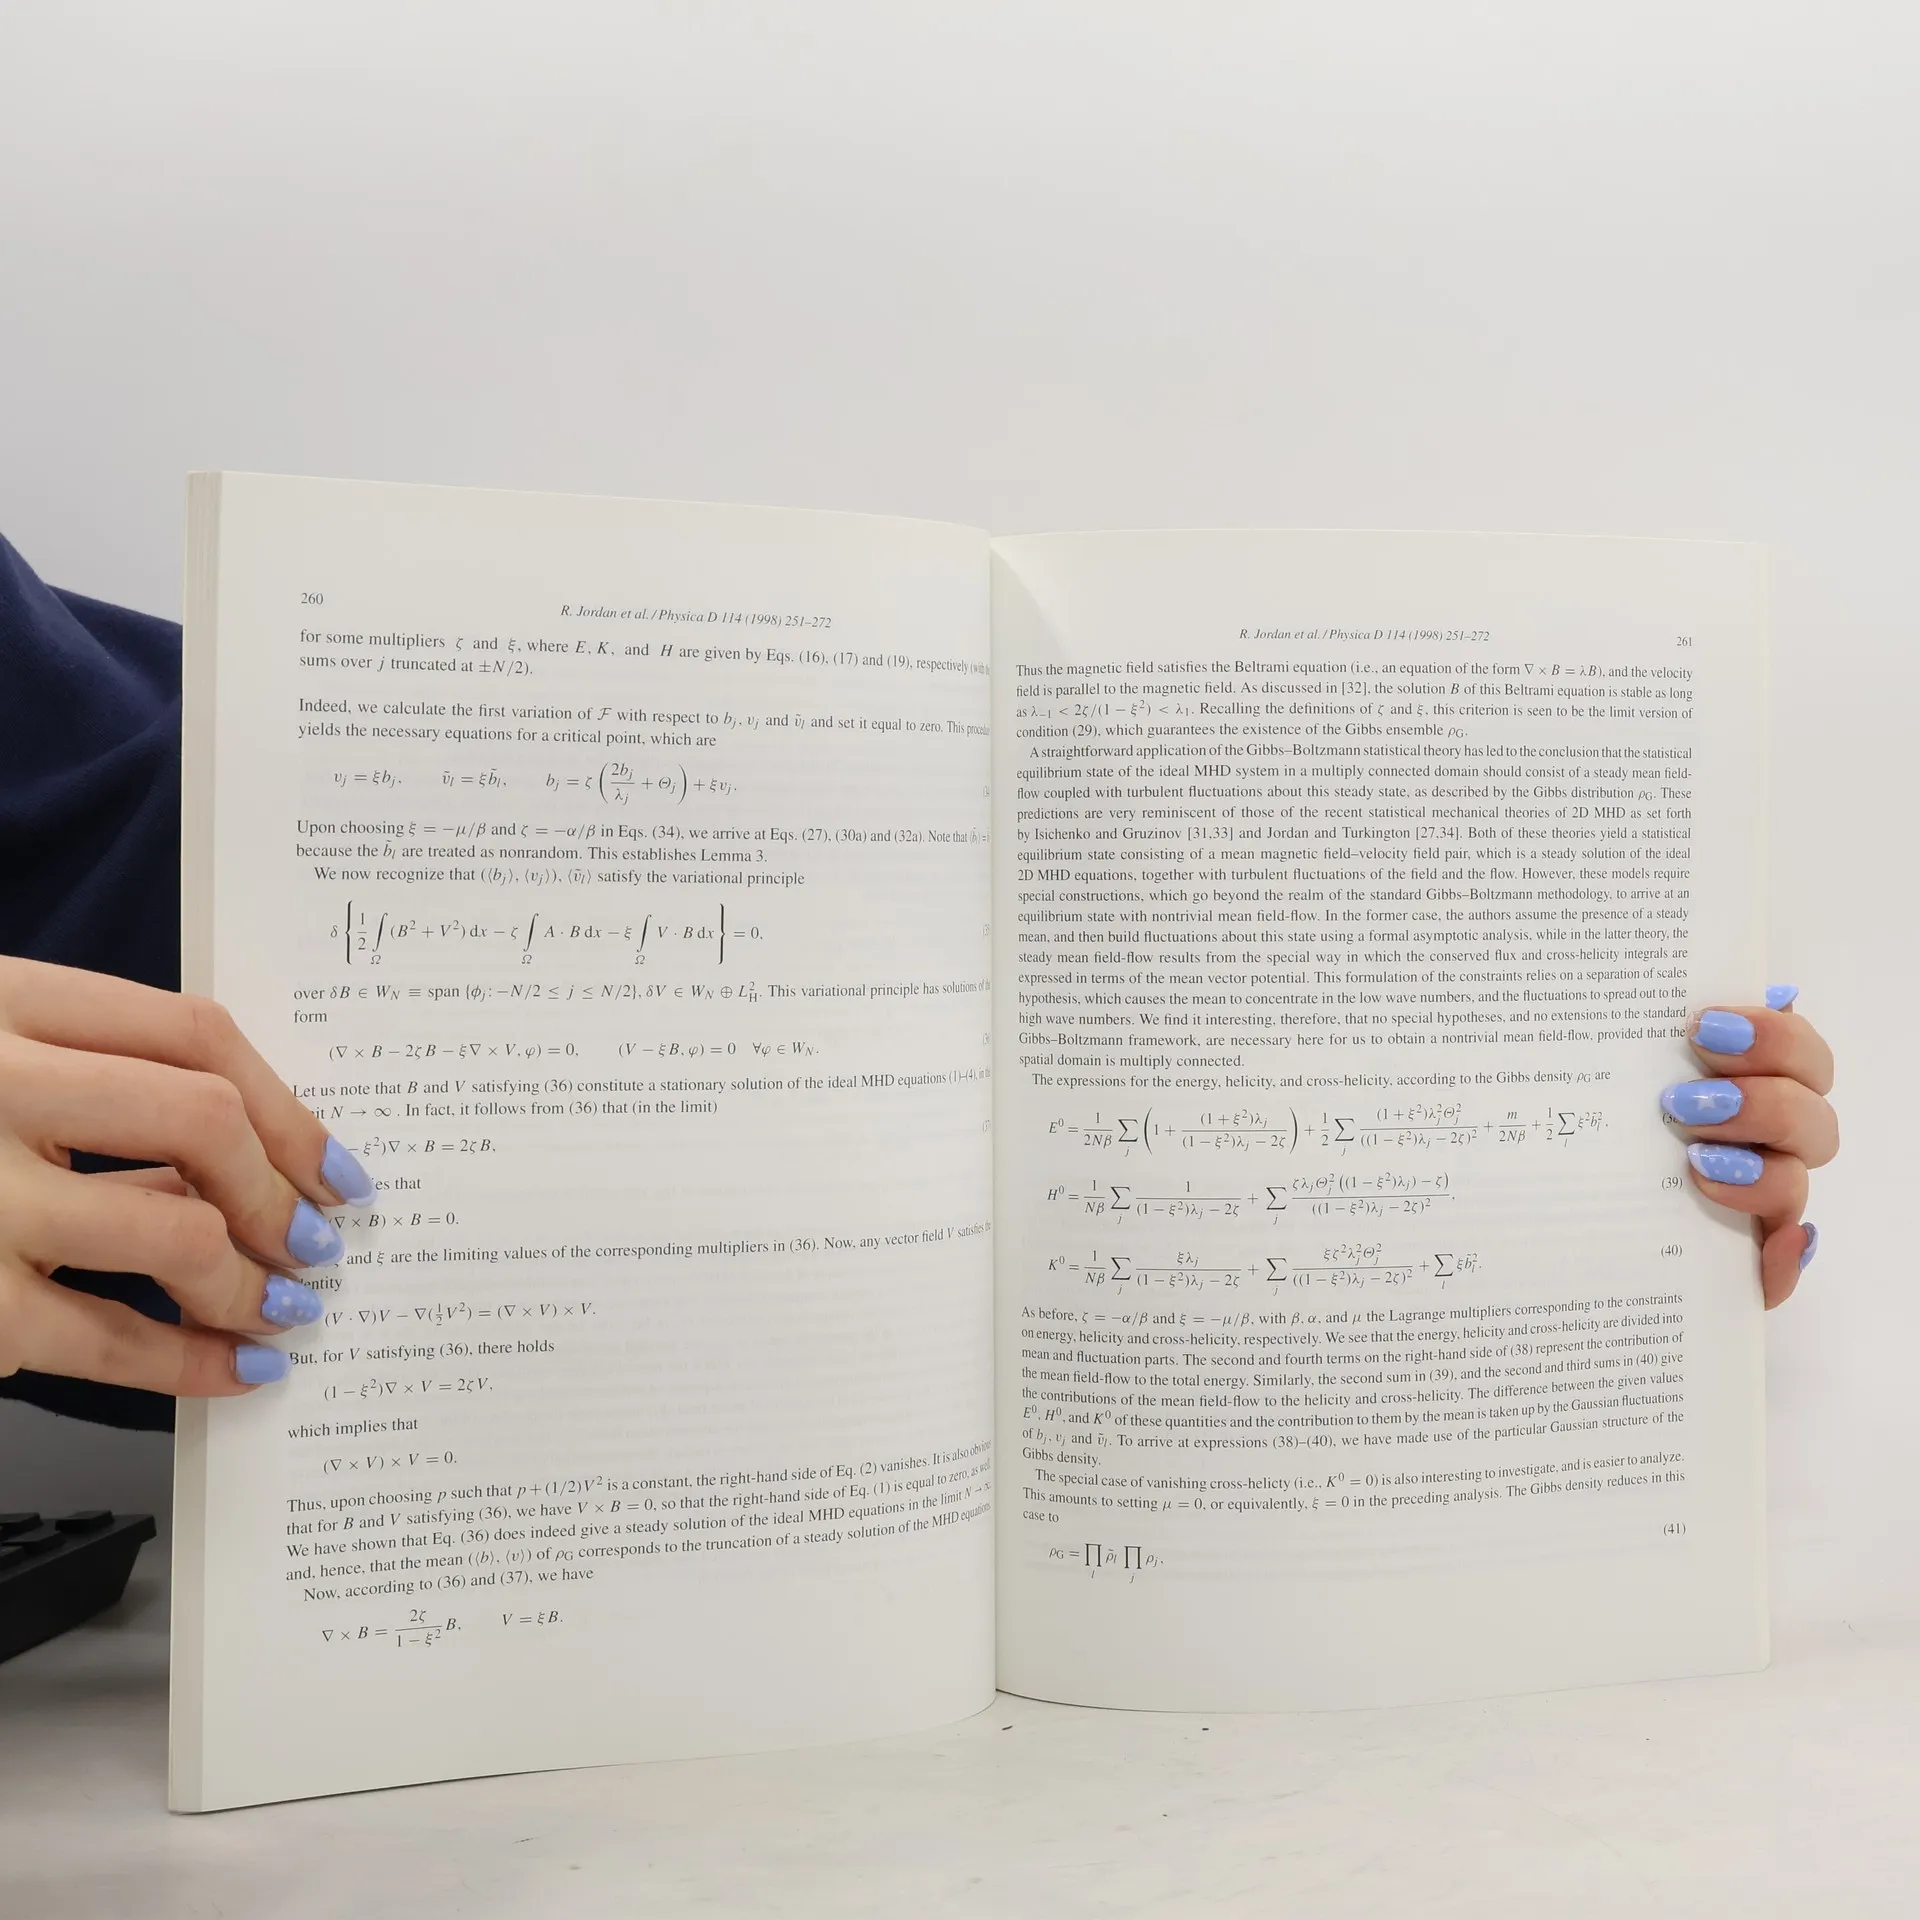 260
R. Jordan et al. / Physica D 114 (1998) 251–272
for some multipliers ζ and ξ, where E, K, and H are given by Eqs. (16), (17) and (19), respectively (with
sums over j truncated at ±N/2).
Indeed, we calculate the first variation of ℱ with respect to b_j, v_j and ṽ_l and set it equal to zero. This
yields the necessary equations for a critical point, which are
v_j = ξb_j, ṽ_l = ξb̃_l, b_j = ζ (2b_j/λ_j + Θ_j) + ξv_j.
Upon choosing ξ = −μ/β and ζ = −α/β in Eqs. (34), we arrive at Eqs. (27), (30a) and (32a). Note that
because the b̃_l are treated as nonrandom. This establishes Lemma 3.
We now recognize that (⟨b_j⟩, ⟨v_j⟩), ⟨ṽ_l⟩ satisfy the variational principle
δ {1/2 ∫_Ω (B² + V²) dx − ζ ∫_Ω A · B dx − ξ ∫_Ω V · B dx} = 0,
over δB ∈ W_N ≡ span {ϕ_j: −N/2 ≤ j ≤ N/2}, δV ∈ W_N ⊕ L²_H. This variational principle has solutions of
form
(∇ × B − 2ζB − ξ∇ × V, φ) = 0, (V − ξB, φ) = 0 ∀φ ∈ W_N.
Let us note that B and V satisfying (36) constitute a stationary solution of the ideal MHD equations (1)–(4), in
N → ∞. In fact, it follows from (36) that (in the limit)
− ξ²)∇ × B = 2ζB,
that
∇ × B) × B = 0.
and ξ are the limiting values of the corresponding multipliers in (36). Now, any vector field V satisfies
(V · ∇)V − ∇(½V²) = (∇ × V) × V.
But, for V satisfying (36), there holds
(1 − ξ²)∇ × V = 2ζV,
which implies that
(∇ × V) × V = 0.
Thus, upon choosing p such that p + (1/2)V² is a constant, the right-hand side of Eq. (2) vanishes. It is also obvious
that for B and V satisfying (36), we have V × B = 0, so that the right-hand side of Eq. (1) is equal to zero, as well.
We have shown that Eq. (36) does indeed give a steady solution of the ideal MHD equations in the limit N → ∞
and, hence, that the mean (⟨b⟩, ⟨v⟩) of ρ_G corresponds to the truncation of a steady solution of the MHD equations
Now, according to (36) and (37), we have
∇ × B = 2ζ/(1 − ξ²) B, V = ξB.
R. Jordan et al. / Physica D 114 (1998) 251–272
261
Thus the magnetic field satisfies the Beltrami equation (i.e., an equation of the form ∇ × B = λB), and the velocity
field is parallel to the magnetic field. As discussed in [32], the solution B of this Beltrami equation is stable as long
as λ₋₁ < 2ζ/(1 − ξ²) < λ₁. Recalling the definitions of ζ and ξ, this criterion is seen to be the limit version of
condition (29), which guarantees the existence of the Gibbs ensemble ρ_G.
A straightforward application of the Gibbs–Boltzmann statistical theory has led to the conclusion that the statistical
equilibrium state of the ideal MHD system in a multiply connected domain should consist of a steady mean field-
flow coupled with turbulent fluctuations about this steady state, as described by the Gibbs distribution ρ_G. These
predictions are very reminiscent of those of the recent statistical mechanical theories of 2D MHD as set forth
by Isichenko and Gruzinov [31,33] and Jordan and Turkington [27,34]. Both of these theories yield a statistical
equilibrium state consisting of a mean magnetic field–velocity field pair, which is a steady solution of the ideal
2D MHD equations, together with turbulent fluctuations of the field and the flow. However, these models require
special constructions, which go beyond the realm of the standard Gibbs–Boltzmann methodology, to arrive at an
equilibrium state with nontrivial mean field-flow. In the former case, the authors assume the presence of a steady
mean, and then build fluctuations about this state using a formal asymptotic analysis, while in the latter theory, the
steady mean field-flow results from the special way in which the conserved flux and cross-helicity integrals are
expressed in terms of the mean vector potential. This formulation of the constraints relies on a separation of scales
hypothesis, which causes the mean to concentrate in the low wave numbers, and the fluctuations to spread out to the
high wave numbers. We find it interesting, therefore, that no special hypotheses, and no extensions to the standard
Gibbs–Boltzmann framework, are necessary here for us to obtain a nontrivial mean field-flow, provided that the
spatial domain is multiply connected.
The expressions for the energy, helicity, and cross-helicity, according to the Gibbs density ρ_G are
E⁰ = 1/(2Nβ) ∑_j (1 + (1 + ξ²)λ_j/((1 − ξ²)λ_j − 2ζ)) + 1/2 ∑_j (1 + ξ²)λ_j²Θ_j²/((1 − ξ²)λ_j − 2ζ)² + m/(2Nβ) + 1/2 ∑_l ξ²b̃_l²,
H⁰ = 1/(Nβ) ∑_j 1/((1 − ξ²)λ_j − 2ζ) + ∑_j ζλ_jΘ_j²((1 − ξ²)λ_j) − ζ)/((1 − ξ²)λ_j − 2ζ)², (39)
K⁰ = 1/(Nβ) ∑_j ξλ_j/((1 − ξ²)λ_j − 2ζ) + ∑_j ξζ²λ_j²Θ_j²/((1 − ξ²)λ_j − 2ζ)² + ∑_l ξb̃_l². (40)
As before, ζ = −α/β and ξ = −μ/β, with β, α, and μ the Lagrange multipliers corresponding to the constraints
on energy, helicity and cross-helicity, respectively. We see that the energy, helicity and cross-helicity are divided into
mean and fluctuation parts. The second and fourth terms on the right-hand side of (38) represent the contribution of
the mean field-flow to the total energy. Similarly, the second sum in (39), and the second and third sums in (40) give
the contributions of the mean field-flow to the helicity and cross-helicity. The difference between the given values
E⁰, H⁰, and K⁰ of these quantities and the contribution to them by the mean is taken up by the Gaussian fluctuations
of b_j, v_j and ṽ_l. To arrive at expressions (38)–(40), we have made use of the particular Gaussian structure of the
Gibbs density.
The special case of vanishing cross-helicty (i.e., K⁰ = 0) is also interesting to investigate, and is easier to analyze.
This amounts to setting μ = 0, or equivalently, ξ = 0 in the preceding analysis. The Gibbs density reduces in this
case to
ρ_G = ∏_l ρ̃_l ∏_j ρ_j, (41)